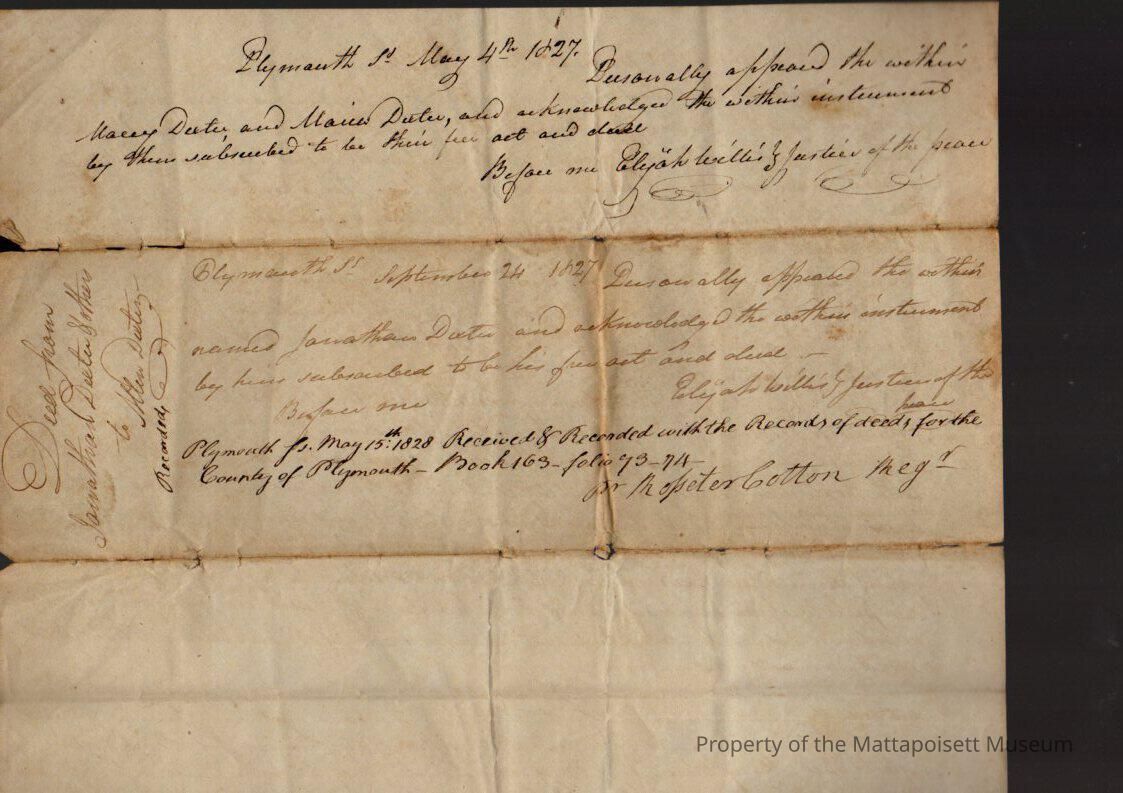 Plymouth Ss May 4th 1827.
Personally appeard the within
Dexter and Maria Dexter, and acknowledged the within instrument
by them subscribed to be their free act and deed
Before me Elijah Willis Justice of the peace
Plymouth Ss September 24 1827 Personally appeared the within
named Jonathan Dexter and acknowledged the within instrument
by him subscribed to be his free act and deed –
Before me Elijah Willis Justice of the
peace
Plymouth Ss. May 15th: 1828 Received & Recorded with the Records of deeds for the
County of Plymouth – Book 163 – folio 73–74 –
pr Rosseter Cotton Regr
Deed from
Jonathan Dexter & others
to
Allen Dexter
Recorded,
Property of the Mattapoisett Museum